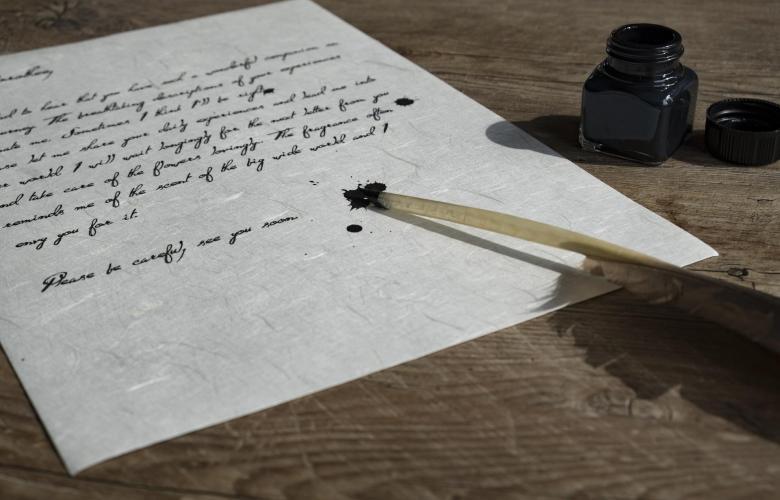 to hear that you have and a wonderful companion on
The breathtaking descriptions of your experiences
me. Sometimes I think I'll be right
let me share your daily experiences and lend me into
world I will wait longingly for the next letter from you
and take care of the flowers lovingly. The fragrance often
reminds me of the scent of the big wide world and I
envy you for it.
Please be careful, see you soon